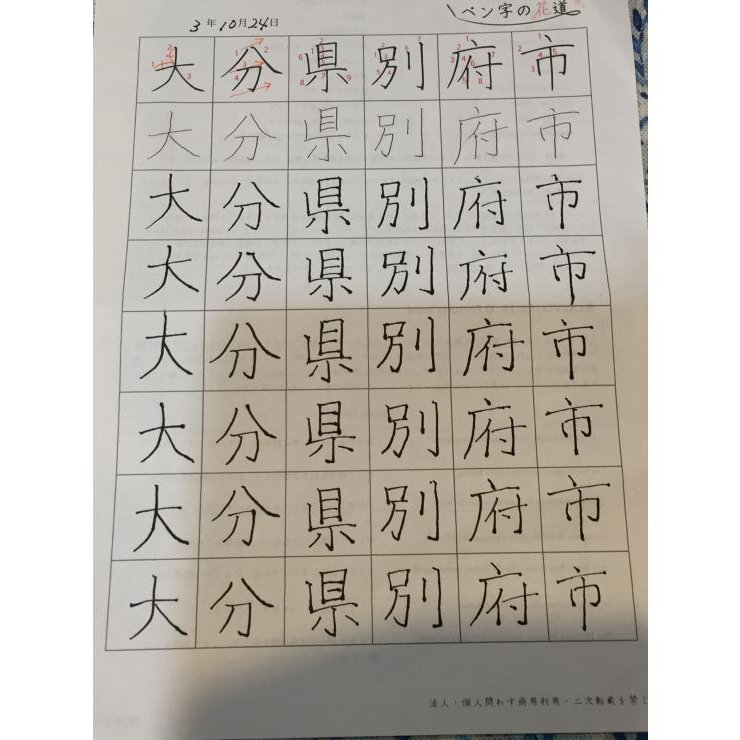 3年10月24日
ペン字の花道
大分県別府市
大分県別府市
大分県別府市
大分県別府市
大分県別府市
大分県別府市
大分県別府市
大分県別府市
法人・個人問わず商用利用・二次転載を禁じ